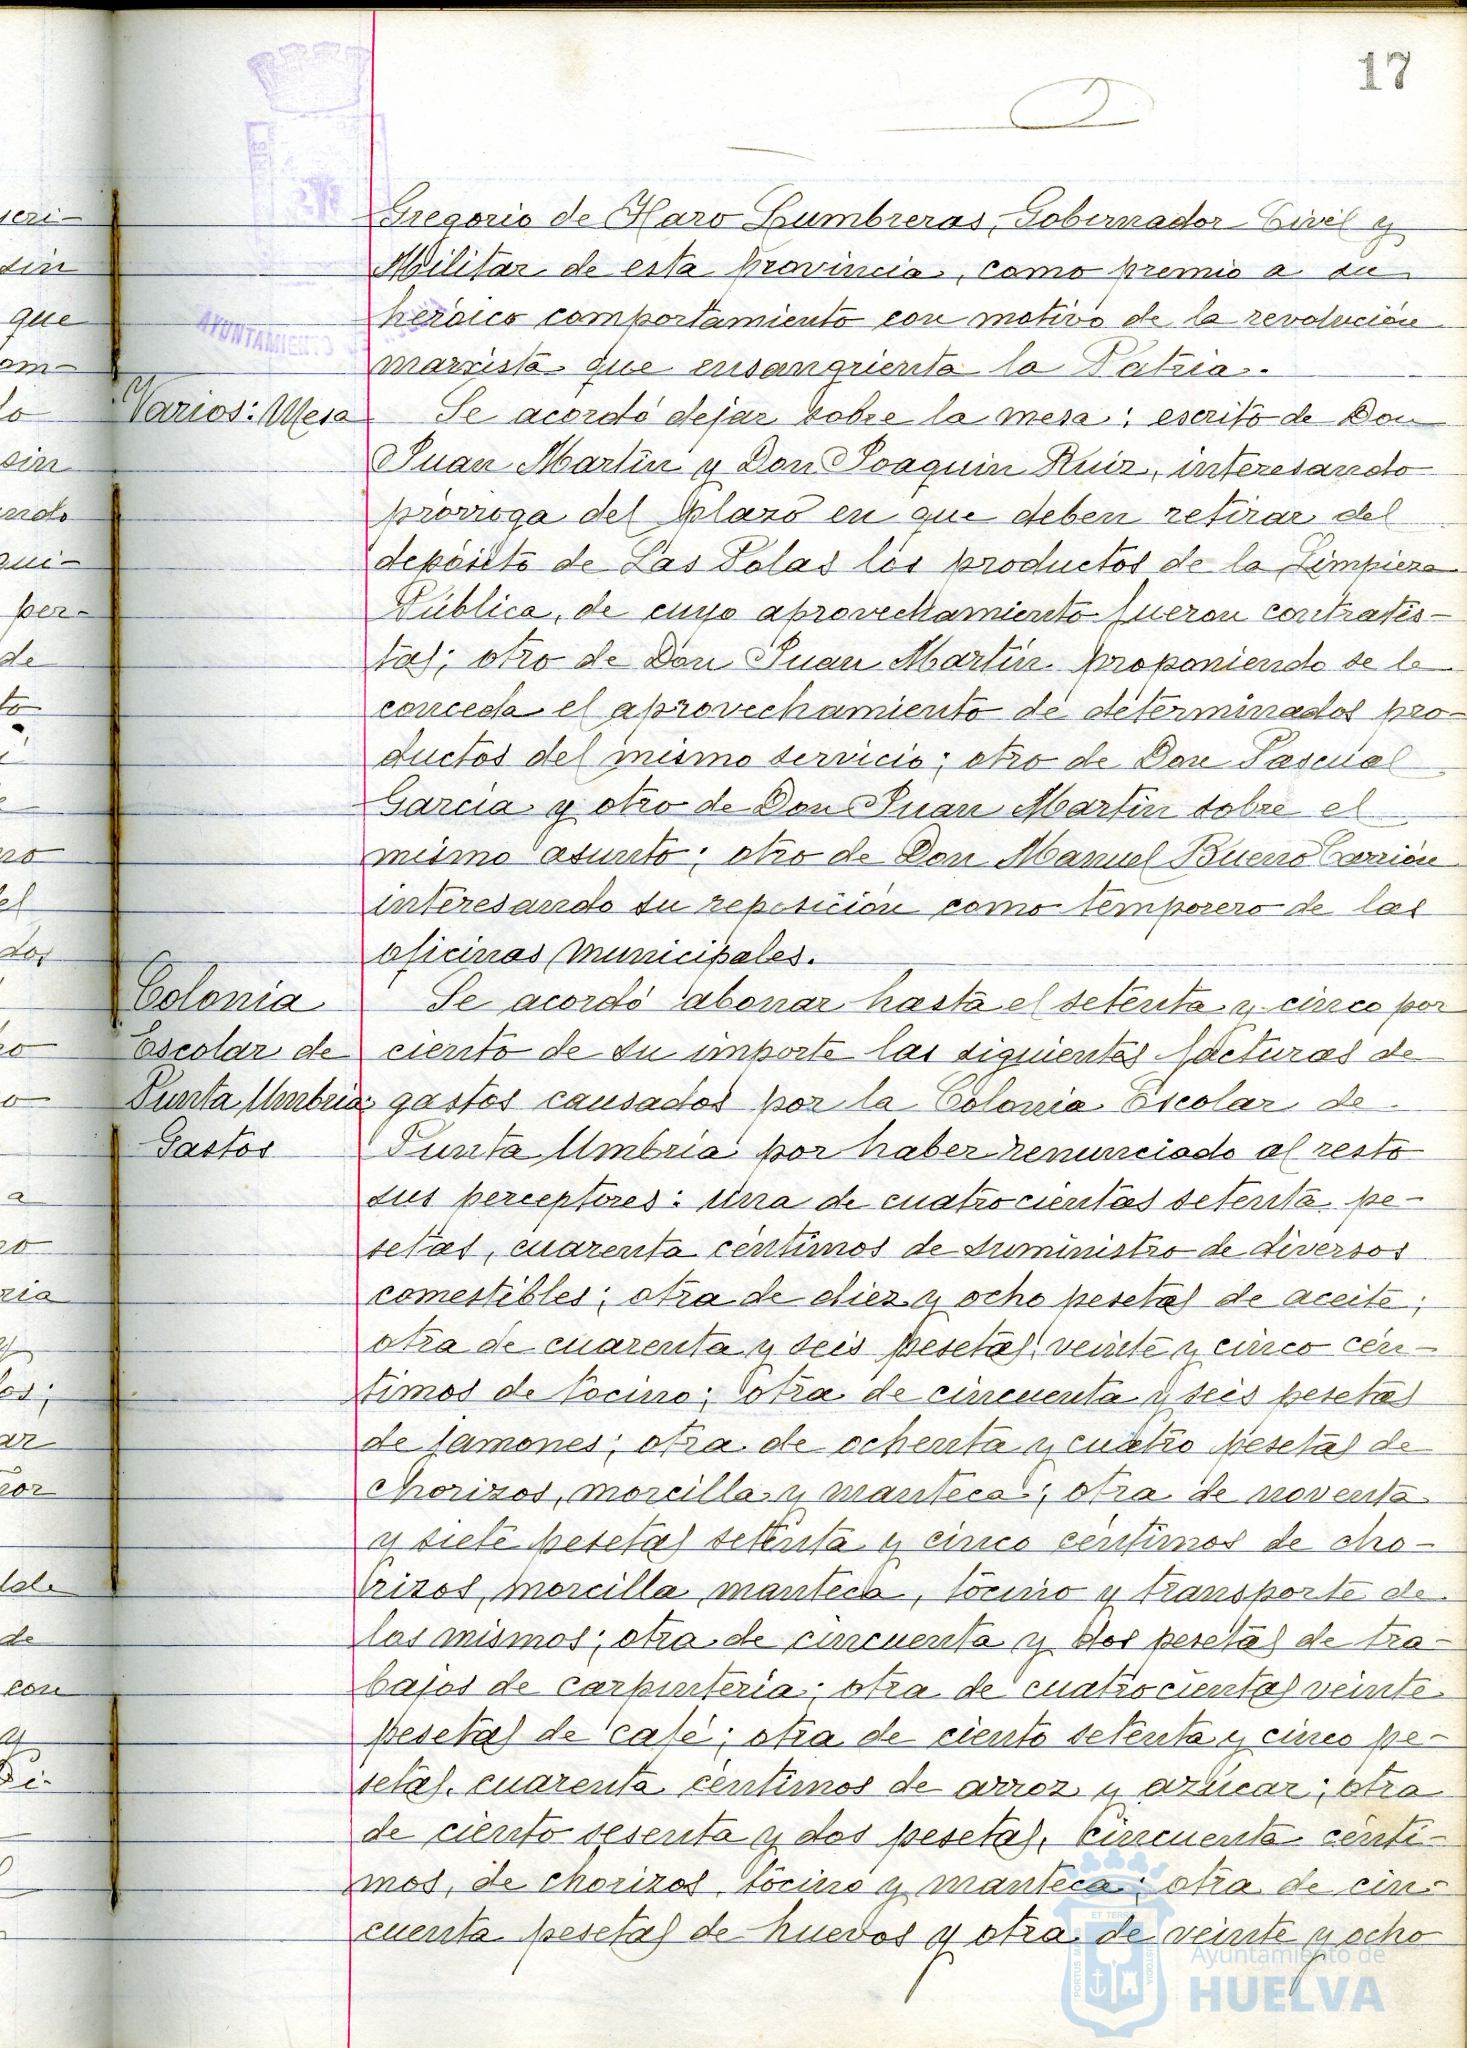 17
Gregorio de Haro Lumbreras, Gobernador Civil y
Militar de esta provincia, como premio a su
heróico comportamiento con motivo de la revolución
marxista que ensangrienta la Patria.
Varios: Mesa
Se acordó dejar sobre la mesa: escrito de Don
Juan Martín y Don Joaquin Ruiz, interesando
prórroga del plazo en que deben retirar del
depósito de Las Polas los productos de la Limpieza
Pública, de cuyo aprovechamiento fueron contratis-
tas; otro de Don Juan Martín proponiendo se le
conceda el aprovechamiento de determinados pro-
ductos del mismo servicio; otro de Don Pascual
García y otro de Don Juan Martín sobre el
mismo asunto; otro de Don Manuel Bueno Carrión
interesando su reposición como temporero de las
oficinas municipales.
Colonia
Escolar de
Punta Umbria:
Gastos
Se acordó abonar hasta el setenta y cinco por
ciento de su importe las siguientes facturas de
gastos causados por la Colonia Escolar de
Punta Umbría por haber renunciado al resto
sus perceptores: una de cuatrocientas setenta pe-
setas, cuarenta céntimos de suministro de diversos
comestibles; otra de diez y ocho pesetas de aceite;
otra de cuarenta y seis pesetas, veinte y cinco cén-
timos de tocino; otra de cincuenta y seis pesetas
de jamones; otra de ochenta y cuatro pesetas de
chorizos, morcilla y manteca; otra de noventa
y siete pesetas setenta y cinco céntimos de cho-
rizos, morcilla, manteca, tocino y transporte de
los mismos; otra de cincuenta y dos pesetas de tra-
bajos de carpintería; otra de cuatrocientas veinte
pesetas de café; otra de ciento setenta y cinco pe-
setas, cuarenta céntimos de arroz y azúcar; otra
de ciento sesenta y dos pesetas, cincuenta cénti-
mos, de chorizos, tocino y manteca; otra de cin-
cuenta pesetas de huevos y otra de veinte y ocho
AYUNTAMIENTO DE
Ayuntamiento de
HUELVA